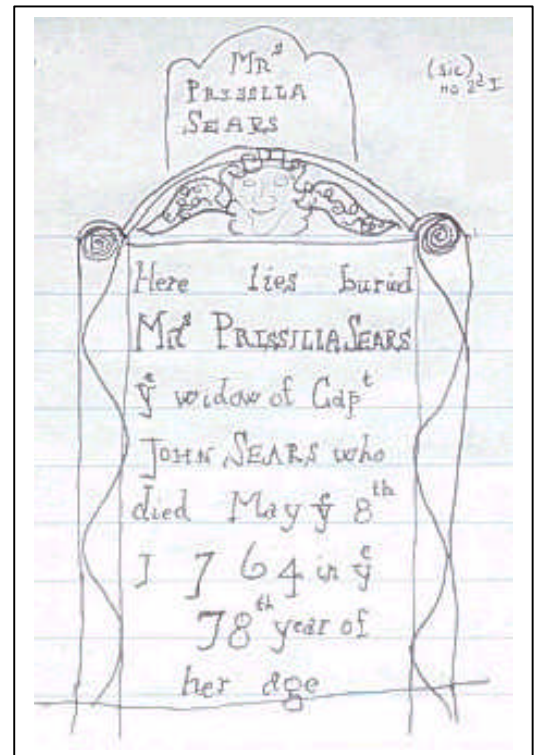 Mrs
PRISSLLA
SEARS
(sic)
no 2d I
Here lies buried
Mrs PRISSILLA SEARS
ye widow of Capt
JOHN SEARS who
died May ye 8th
1764 in ye
78th year of
her age